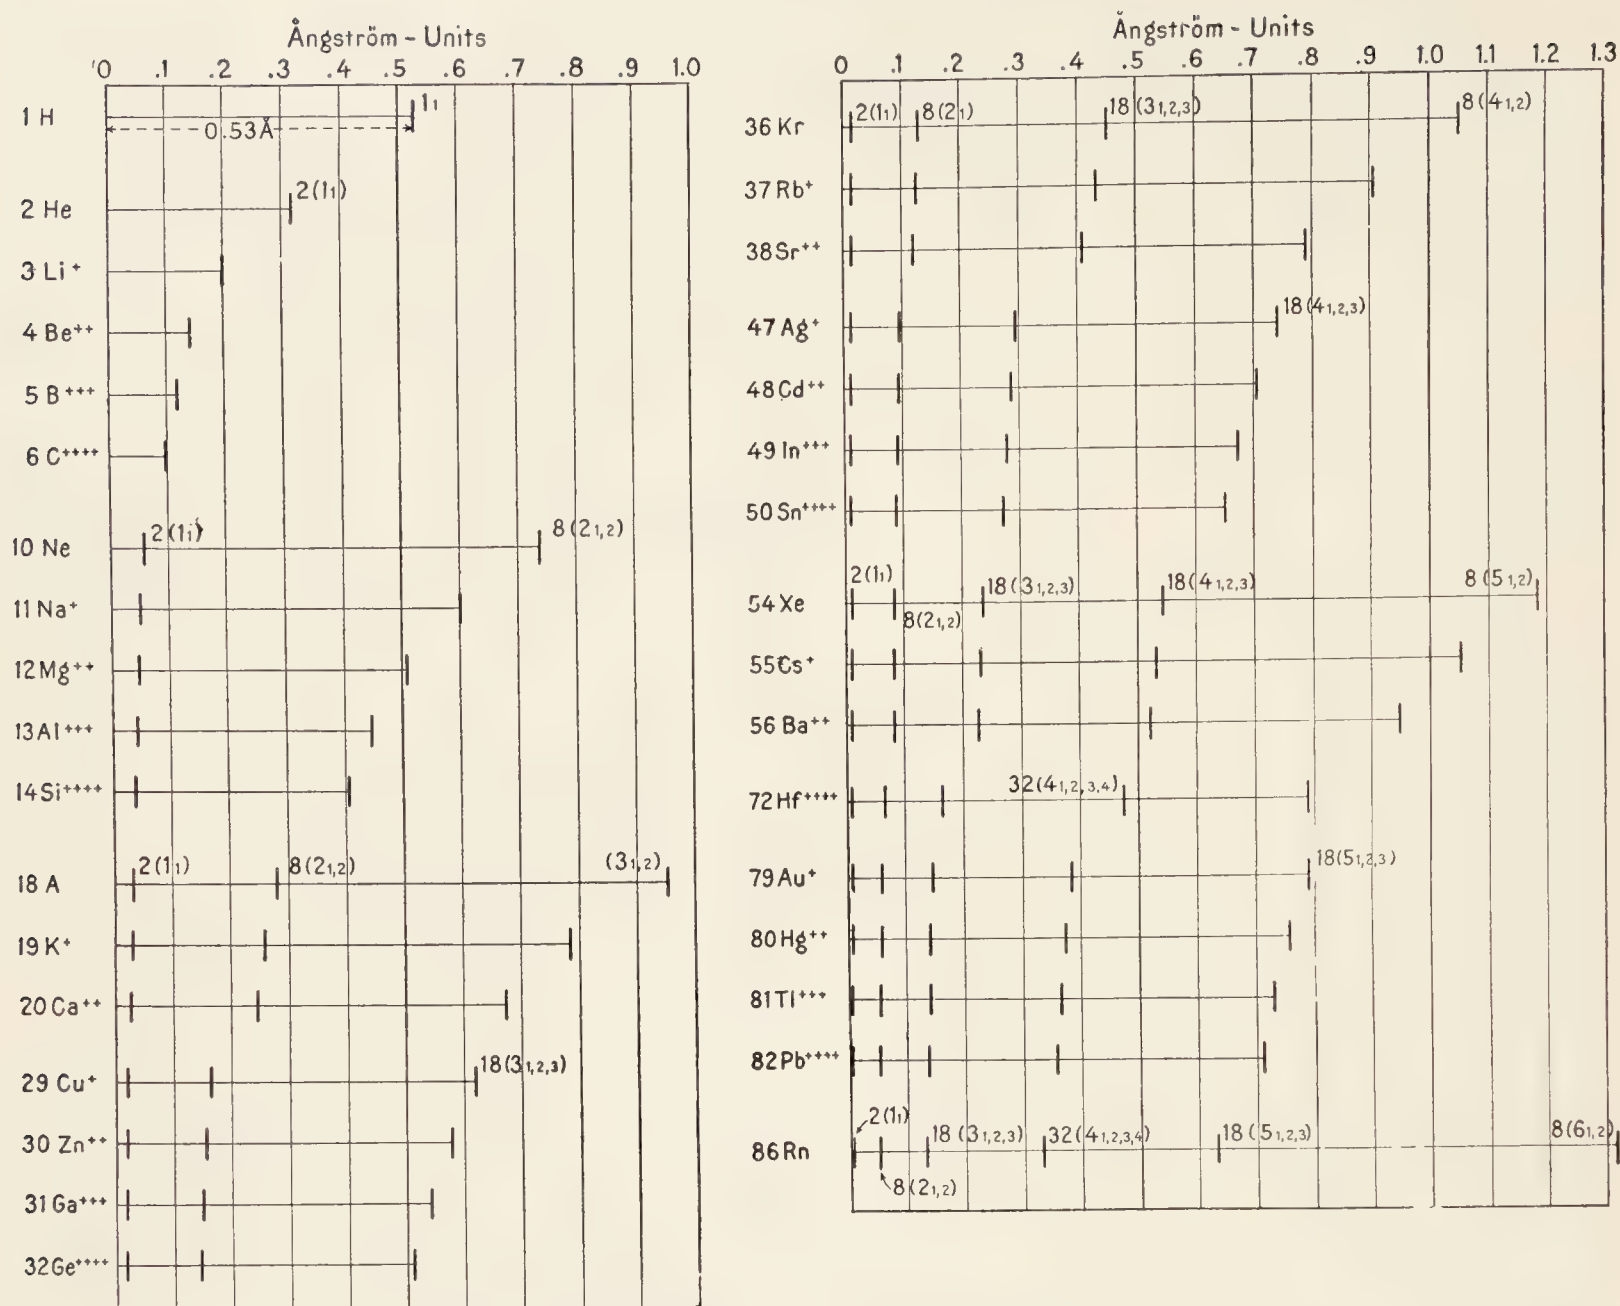 Ångström - Units
0 .1 .2 .3 .4 .5 .6 .7 .8 .9 1.0
1 H 1₁
0.53Å
2 He 2(1₁)
3 Li⁺
4 Be⁺⁺
5 B⁺⁺⁺
6 C⁺⁺⁺⁺
10 Ne 2(1₁) 8(2₁,₂)
11 Na⁺
12 Mg⁺⁺
13 Al⁺⁺⁺
14 Si⁺⁺⁺⁺
18 A 2(1₁) 8(2₁,₂) (3₁,₂)
19 K⁺
20 Ca⁺⁺
29 Cu⁺ 18(3₁,₂,₃)
30 Zn⁺⁺
31 Ga⁺⁺⁺
32 Ge⁺⁺⁺⁺
Ångström - Units
0 .1 .2 .3 .4 .5 .6 .7 .8 .9 1.0 1.1 1.2 1.3
36 Kr 2(1₁) 8(2₁) 18(3₁,₂,₃) 8(4₁,₂)
37 Rb⁺
38 Sr⁺⁺
47 Ag⁺ 18(4₁,₂,₃)
48 Cd⁺⁺
49 In⁺⁺⁺
50 Sn⁺⁺⁺⁺
54 Xe 2(1₁) 8(2₁,₂) 18(3₁,₂,₃) 18(4₁,₂,₃) 8(5₁,₂)
55 Cs⁺
56 Ba⁺⁺
72 Hf⁺⁺⁺⁺ 32(4₁,₂,₃.₄)
79 Au⁺ 18(5₁,₂,₃)
80 Hg⁺⁺
81 Tl⁺⁺⁺
82 Pb⁺⁺⁺⁺
86 Rn 2(1₁) 8(2₁,₂) 18(3₁,₂,₃) 32(4₁,₂,₃,₄) 18(5₁,₂,₃) 8(6₁,₂)